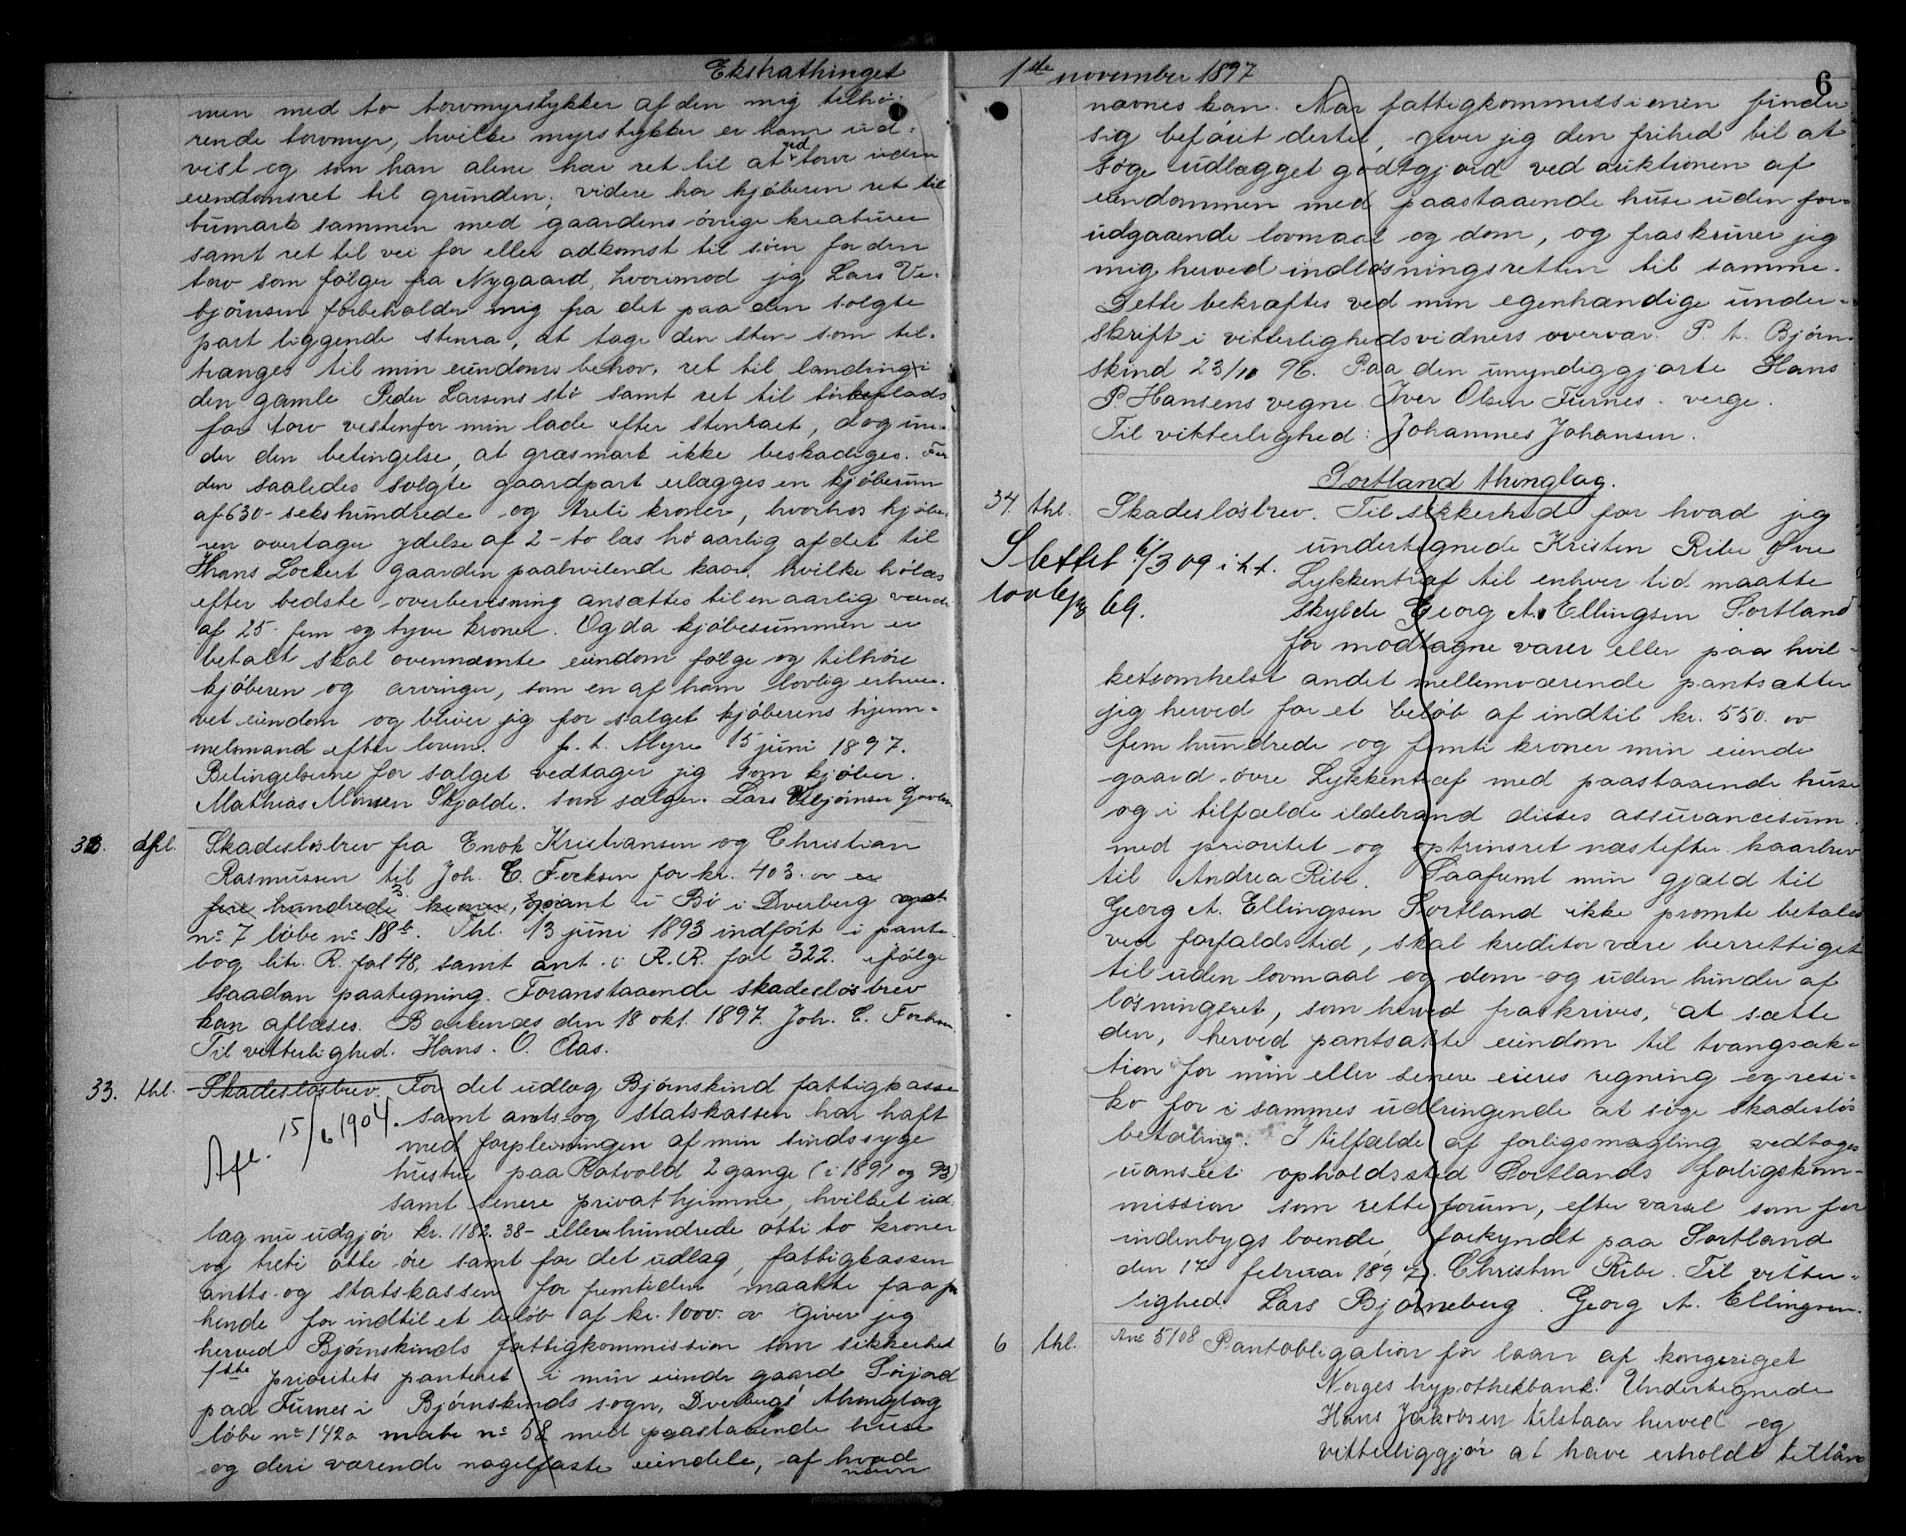 Ekstrathinget
men med to torvmyrstykker af den mig tilhø-
rende torvmyr, hvilke myrstykker er ham ud-
vist og som han alene har ret til at ud torve uden
eiendomsret til grunden; videre har kjøberen ret til
bumark sammen med gaardens øvrige kreaturer
samt ret til vei for eller adkomst til søen for den
torv som følger fra Nygaard, hvorimod jeg Lars Ve-
bjørnsen forbeholder mig fra det paa den solgte
part liggende stenra, at tage den sten som til-
trænges til min eiendoms behov, ret til landing i
den gamle Peder Larsens stø samt ret til tørkeplads
for torv vestenfor min lade efter stenraet, dog un-
der den betingelse, at græsmark ikke beskadiges. For
den saaledes solgte gaardpart erlægges en kjøbesum
af 630 - sekshundrede og treti kroner, hvorhos kjøbe-
ren overtager ydelse af 2 - to læs hø aarlig af det til
Hans Lockert gaarden paahvilende kaar, hvilke hølæs
efter bedste overbevisning ansættes til en aarlig værdi
af 25 - fem og tyve kroner. Og da kjøbesummen er
betalt skal ovennævnte eiendom følge og tilhøre
kjøberen og arvinger, som en af ham lovlig erhver-
vet eiendom og bliver jeg for salget kjøberens hjem-
melsmand efter loven. p. t. Myre 15 juni 1897.
Betingelserne for salget vedtager jeg som kjøber.
Mathias Monsen Skjolde. som sælger. Lars Vebjørnsen
32. afl. Skadesløsbrev fra Enok Kristiansen og Christian
Rasmussen til Joh. E. Forksen for kr. 403. er
fire hundrede 3 kroner, pant i Bø i Dverberg
no 7 løbe no 18b. Thl. 13 juni 1893 indført i pante-
bog litr. R. fol 48, samt ant. i R.R. fol 322. ifølge
saadan paategning. Foranstaaende skadesløsbrev
kan aflæses. Barkenæs den 18 okt. 1897. Joh. E. Forksen
Til vitterlighed. Hans. O. Aas.
33. thl. Skadesløsbrev. For det udlæg Bjørnskind fattigkasse
Afl. 15/6 1904. samt amts og statskassen har haft
med forpleiningen af min sindssyge
hustru paa Rotvold 2 gange (i 1891 og 93)
samt senere privat hjemme, hvilket ud-
læg nu udgjør kr. 1182.38 - ellevehundrede otti to kroner
og treti otte øre samt for det udlæg, fattigkassen
amts- og statskassen for fremtiden maatte faa paa
hende for indtil et beløb af kr. 1000. giver jeg
herved Bjørnskinds fattigkommission som sikkerhed
1ste prioritets panteret i min eiende gaard Sørjord
paa Furnes i Bjørnskinds sogn, Dverbergs thinglag
løbe no 142a matr. no 58 med paastaaende huse
og deri værende nagelfaste eiendele, af hvad
navn
1ste november 1897
6
nævnes kan. Naar fattigkommissionen finder
sig beføiet dertil, giver jeg den frihed til at
søge udlægget godtgjord ved auktionen af
eiendommen med paastaaende huse uden for-
udgaaende lovmaal og dom, og fraskriver jeg
mig herved indløsningsretten til samme.
Dette bekræftes ved min egenhændige under-
skrift i vitterlighedsvidners overvær. P. t. Bjørn-
skind 23/10 96. Paa den umyndiggjorte Hans
P. Hansens vegne. Iver Olsen Furnes. verge.
Til vitterlighed: Johannes Johansen.
Sortland thinglag.
34. thl. Skadesløsbrev. Til sikkerhed for hvad jeg
undertegnede Kristen Ribe Øvre
Slettet 6/3 09 i h.t. Lykkentræf til enhver tid maatte
lov 6/3 69. skylde Georg A. Ellingsen Sortland
for modtagne varer eller paa hvil-
ketsomhelst andet mellemværende pantsætter
jeg herved for et beløb af indtil kr. 550.
fem hundrede og femti kroner min eiende
gaard øvre Lykkentræf med paastaaende huse
og i tilfælde ildebrand disses assurancesum.
med prioritet og optrinsret næstefter kaarbrev
til Andrea Ribe. Saafremt min gjæld til
Georg A. Ellingsen Sortland ikke promte betales
ved forfaldstid, skal kreditor være berettiget
til uden lovmaal og dom og uden hinder af
løsningsret, som herved fraskrives, at sætte
den, herved pantsatte eiendom til tvangsak-
tion for min eller senere eieres regning og resi-
ko for i sammes udbringende at søge skadesløs
betaling. I tilfælde af forligsmægling vedtages
uanseet opholdssted Sortlands forligskom-
mission som rette forum, efter varsel som for
indenbygs boende, forkyndt paa Sortland
den 17 februar 1897. Christen Ribe. Til vitter-
lighed. Lars Bjørneberg. Georg A. Ellingsen.
6 thl. Ans 5/08 Pantobligation for laan af kongeriget
Norges hypothekbank. Undertegnede
Hans Jakobsen tilstaar herved og
vitterliggjør at have erholdt tillaans